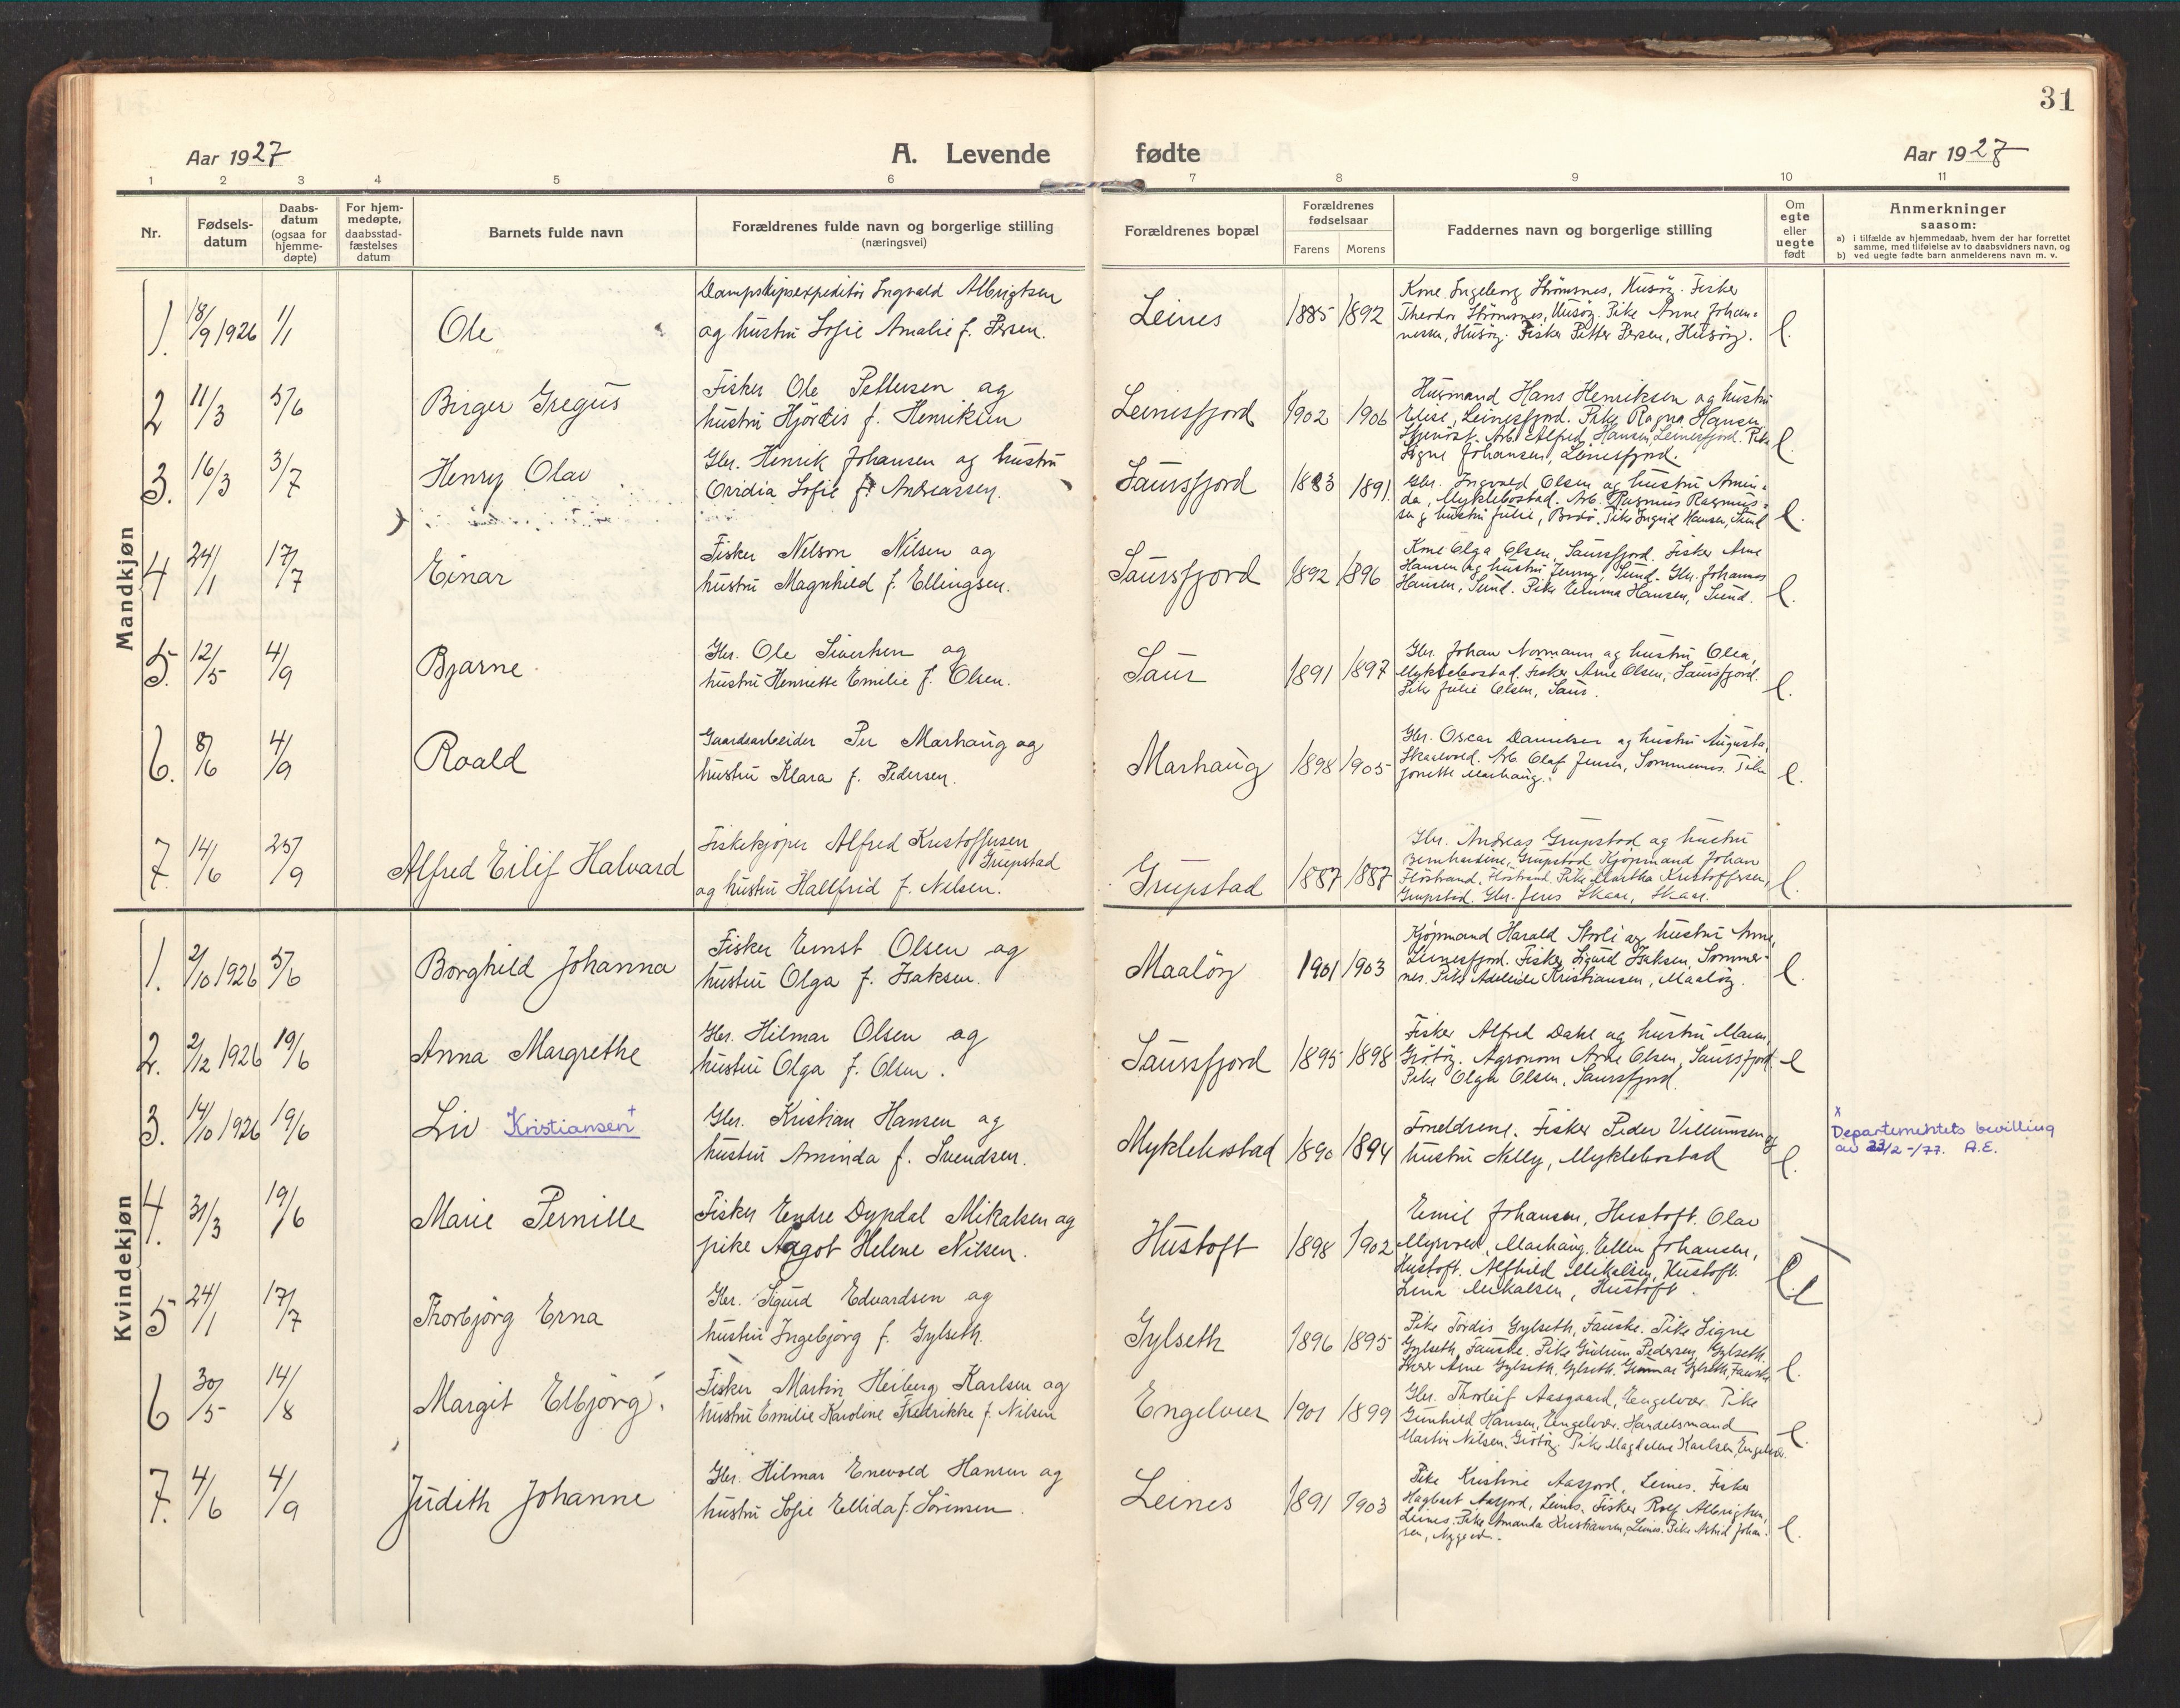 31
Aar 1927
A. Levende fødte
Aar 1927
1 2 3 4 5 6 7 8 9 10 11
Nr.
Fødsels-
datum
Daabs-
datum
(ogsaa for
hjemme-
døpte)
For hjem-
medøpte,
daabsstad-
fæstelses
datum
Barnets fulde navn
Forældrenes fulde navn og borgerlige stilling
(næringsvei)
Forældrenes bopæl
Forældrenes
fødselsaar
Farens Morens
Faddernes navn og borgerlige stilling
Om
egte
eller
uegte
født
Anmerkninger
saasom:
a) i tilfælde av hjemmedaab, hvem der har forrettet
samme, med tilføielse av to daabsvidners navn, og
b) ved uegte fødte barn anmelderens navn m. v.
Mandkjøn
1. 18/9 1926 1/1
Ole
Dampskipsexpeditør Ingvald Albrigtsen
og hustru Sofie Amalie f. Persen.
Leines 1885 1892
Kone Ingeborg Strømsnes, Husöy. Fisker
Theodor Strömsnes, Husöy. Pike Anne Johan-
nessen, Husöy. Fisker Petter Persen, Husöy.
e.
2 11/3 5/6
Birger Gregus
Fisker Ole Pettersen og
hustru Hjördis f. Henriksen
Leinesfjord 1902 1906
Husmand Hans Henriksen og hustru
Elise, Leinesfjord. Pike Ragna Hansen,
Arb. Alfred Hansen, Leinesfjord. Pike
Signe Johansen, Leinesfjord.
e.
3. 16/3 3/7
Henry Olav
Gbr. Henrik Johansen og hustru
Ovidia Sofie f. Andreassen.
Saursfjord 1883 1891
Gbr. Ingvald Olsen og hustru Amin-
da, Myklebostad. Arb. Rasmus Rasmus-
sen og hustru Julie, Bodö. Pike Ingrid Hansen, Sund
e.
4 24/1 17/7
Einar
Fisker Nelson Nilsen og
hustru Magnhild f. Ellingsen.
Saursfjord 1892 1896
Kone Olga Olsen, Saursfjord. Fisker Arne
Hansen og hustru Jenny, Sund. Gbr. Johannes
Hansen, Sund. Pike Emma Hansen, Sund.
e.
5. 12/5 4/9
Bjarne
Gbr. Ole Sivertsen og
hustru Henriette Emilie f. Olsen.
Saur 1891 1897
Gbr. Johan Normann og hustru Olea,
Myklebostad. Fisker Arne Olsen, Saursfjord.
Pike Julie Olsen, Saur.
e.
6. 8/6 4/9
Roald
Gaardsarbeider Per Marhaug og
hustru Klara f. Pedersen.
Marhaug 1898 1905
Gbr. Oscar Danielsen og hustru Augusta,
Skarvold. Arb. Olaf Jensen, Sommernes. Pike
Jonette Marhaug.
e.
7. 14/6 25/9
Alfred Eilif Halvard
Fiskekjøper Alfred Kristoffersen
Grupstad
og hustru Hallfrid f. Nilsen.
Grupstad 1887 1887
Gbr. Andreas Grupstad og hustru
Bernhardine, Grupstad. Kjøpmand Johan
Flöstrand, Flöstrand. Pike Martha Kristoffersen,
Grupstad. Gbr. Jens Skaar, Skaar.
e.
Kvindekjøn
1. 2/10 1926 5/6
Borghild Johanna
Fisker Ernst Olsen og
hustru Olga f. Isaksen.
Maalöy 1901 1903
Kjöpmand Harald Storli og hustru Anna,
Leinesfjord. Fisker Sigurd Isaksen, Sommer-
nes. Pike Adeleide Kristiansen, Maalöy.
e.
2. 2/12 1926 19/6
Anna Margrethe
Gbr. Hilmar Olsen og
hustru Olga f. Olsen.
Saursfjord 1895 1898
Fisker Alfred Dahl og hustru Maren,
Grötöy. Agronom Arne Olsen, Saursfjord.
Pike Olga Olsen, Saursfjord.
e
3. 14/10 1926 19/6
Liv Kristiansen +
Gbr. Kristian Hansen og
hustru Aminda f. Svendsen.
Myklebostad 1890 1894
Foreldrene. Fisker Peder Villumsen og
hustru Nelly, Myklebostad
e.
x
Departementets bevilling
av 23/2-/77. A.E.
4. 31/3 19/6
Marie Pernille
Fisker Endre Dypdal Mikalsen og
pike Aagot Helene Nilsen.
Hustoft 1898 1902
Emil Johansen, Hustoft. Olav
Myrvoll, Marhaug. Ellen Johansen,
Hustoft. Alfhild Mikalsen, Hustoft.
Lina Mikalsen, Hustoft.
5 24/1 17/7
Thorbjörg Erna
Gbr. Sigurd Edvardsen og
hustru Ingebjörg f. Gylseth.
Gylseth 1896 1895
Pike Tordis Gylseth, Fauske. Pike Signe
Gylseth, Fauske. Pike Gudrun Pedersen, Gylseth.
Arne Gylseth, Gylseth. Gunnar Gylseth, Fauske.
e.
6 30/5 14/8
Margit Elbjörg.
Fisker Martin Heiberg Karlsen og
hustru Emilie Karoline Fredrikke f. Nilsen
Engelvær 1901 1899
Gbr. Thorleif Aasgaard, Engelvær. Pike
Gunhild Hansen, Engelvær. Handelsmand
Martin Nilsen, Grötöy. Pike Magdalene Karlsen, Engelvær.
e.
7. 4/6 4/9
Judith Johanne
Gbr. Hilmar Enevold Hansen og
hustru Sofie Ellida f. Sörensen.
Leines 1891 1903
Pike Kristine Aasjord, Leines. Fisker
Hagbart Aasjord, Leines. Fisker Rolf Albrigtsen,
Leines. Pike Amanda Kristiansen, Leines. Pike Astrid Johan-
sen,
e.